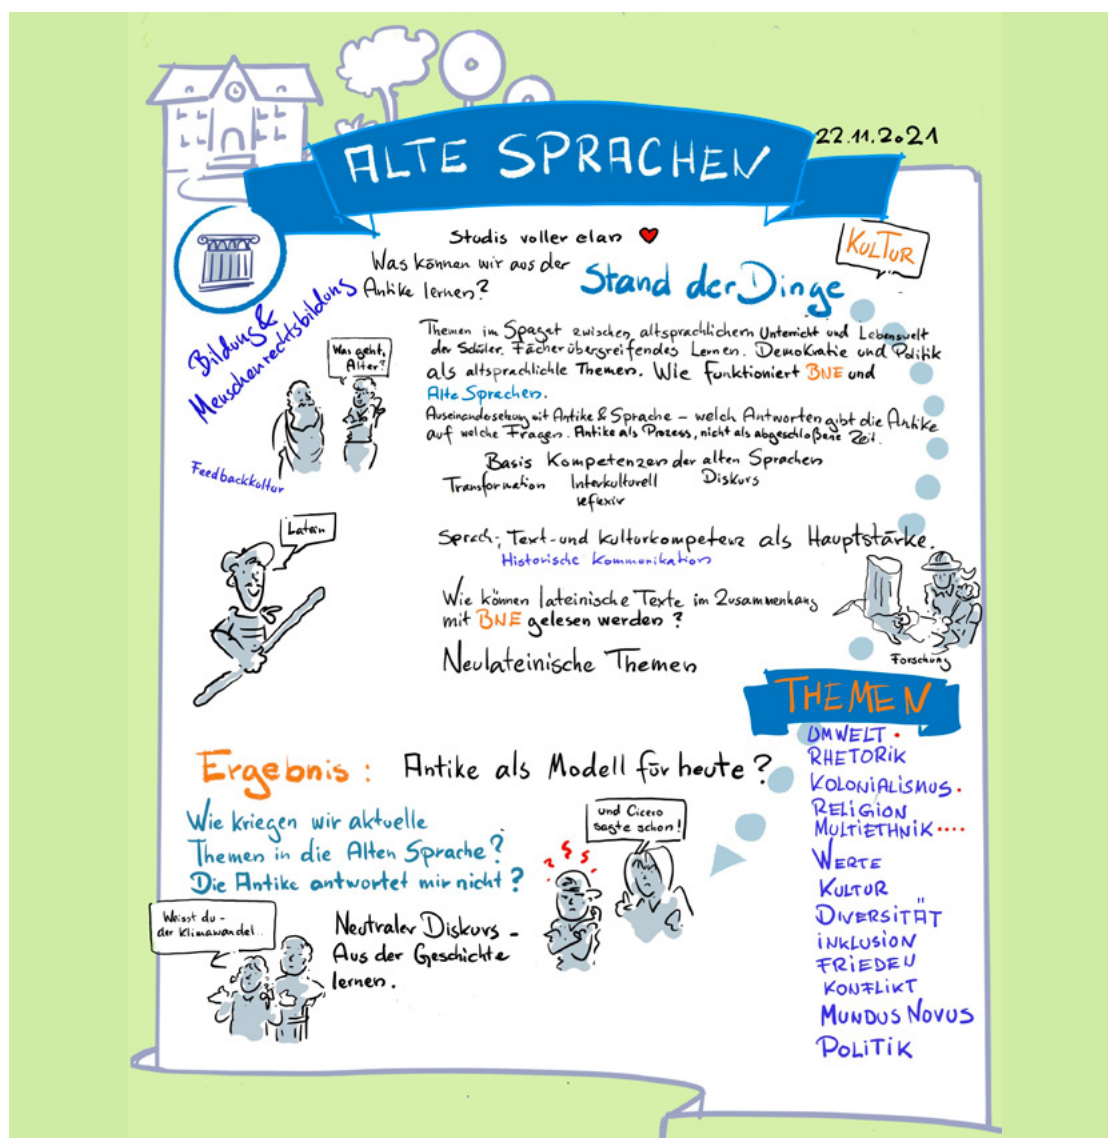 ALTE SPRACHEN
22.11.2021
Studis voller elan
Was können wir aus der
Antike lernen?
Stand der Dinge
KULTUR
Bildung &
Menschenrechtsbildung
Was geht,
Alter?
Themen im Spagat zwischen altsprachlichem Unterricht und Lebenswelt
der Schüler. Fächerübergreifendes Lernen. Demokratie und Politik
als altsprachlichle Themen. Wie funktioniert BNE und
Alte Sprachen.
Auseinandersetzung mit Antike & Sprache – welch Antworten gibt die Antike
auf welche Fragen. Antike als Prozess, nicht als abgeschloßene Zeit.
Feedbackkultur
Basis Kompetenzen der alten Sprachen
Transformation Interkulturell Diskurs
reflexiv
Latein
Sprach-, Text- und Kulturkompetenz als Hauptstärke.
Historische Kommunikation
Wie können lateinische Texte im Zusammenhang
mit BNE gelesen werden?
Neulateinische Themen
Forschung
THEMEN
UMWELT
RHETORIK
KOLONIALISMUS
RELIGION
MULTIETHNIK
WERTE
KULTUR
DIVERSITÄT
INKLUSION
FRIEDEN
KONFLIKT
MUNDUS NOVUS
POLITIK
Ergebnis: Antike als Modell für heute?
Wie kriegen wir aktuelle
Themen in die Alten Sprache?
Die Antike antwortet mir nicht?
und Cicero
sagte schon!
Weisst du –
der Klimawandel..
Neutraler Diskurs –
Aus der Geschichte
lernen.